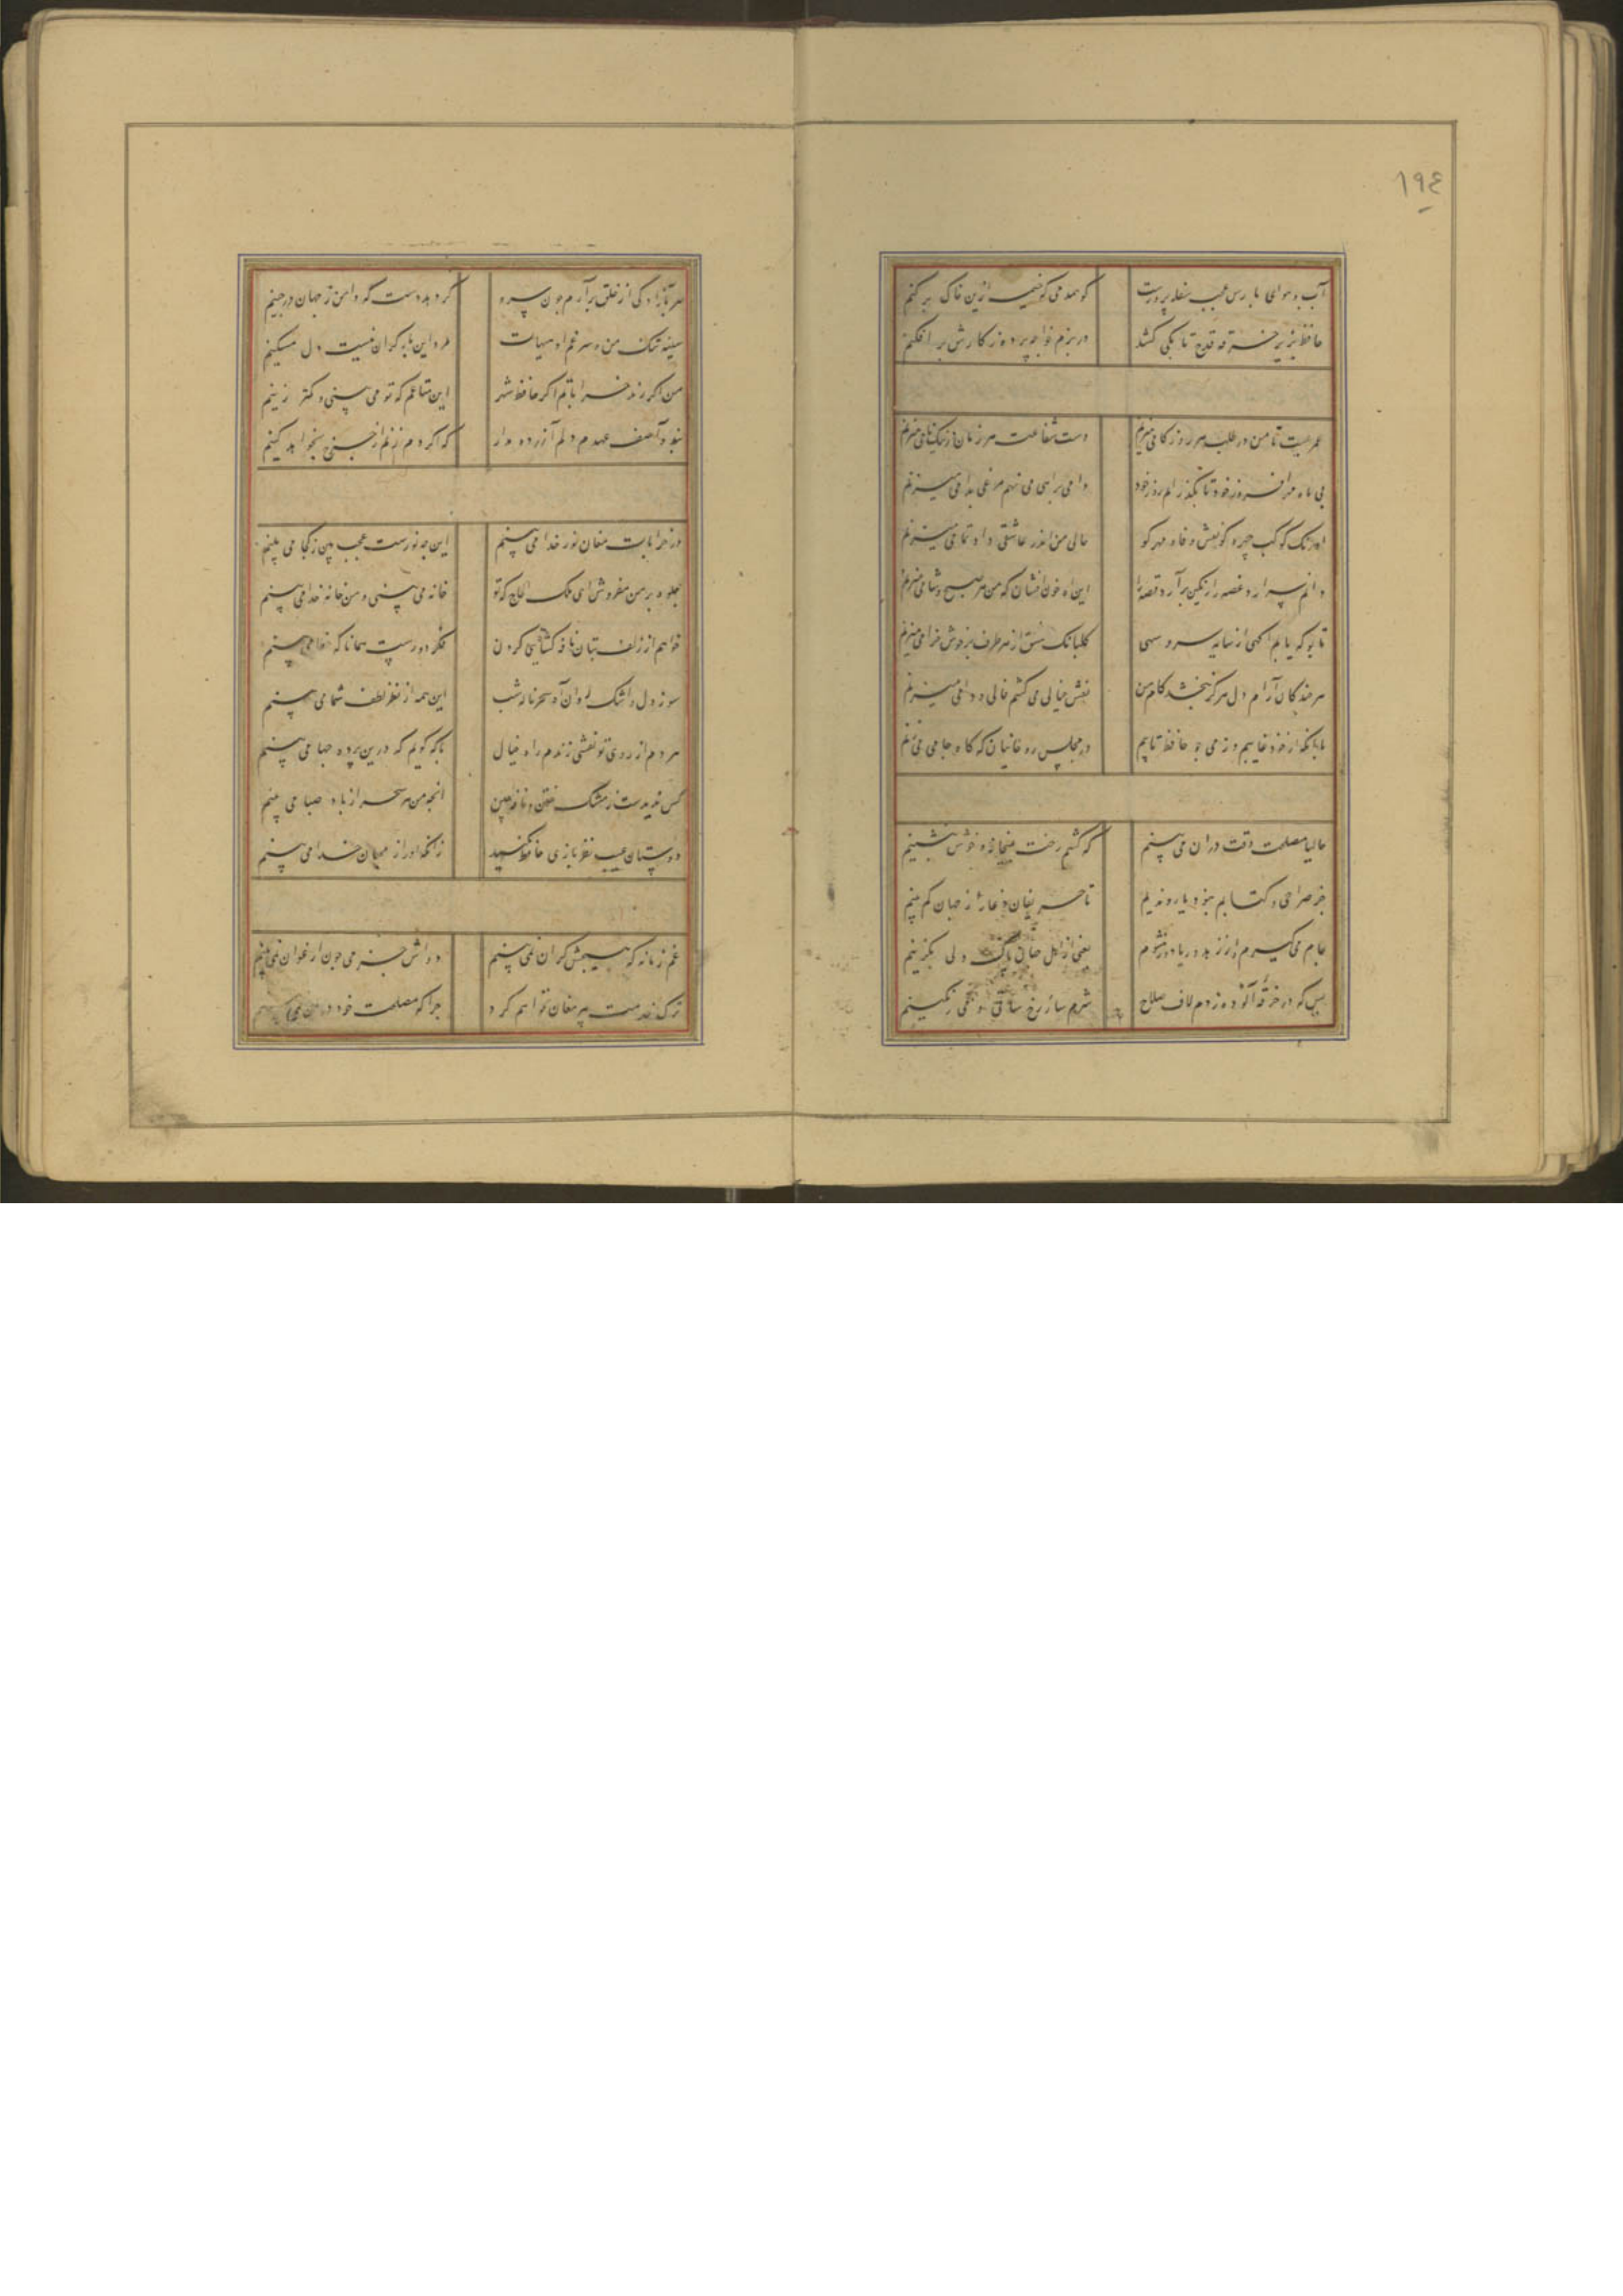 ١٩٤
آب و هوای پارس عجب سفله پرورست کو همرهی که خیمه ازین خاک بر کنم
حافظ بزیر خرقه قدح تا بکی کشد در بزم خواجه پرده ز کارش بر افکنم
عمریست تا من در طلب هر روز کامی میزنم دست شفاعت هر زمان در نیک نامی میزنم
بی ماه مهر افروز خود تا بگذرانم روز خود دامی براهی می نهم مرغی بدامی میزنم
اورنک کو کلچهره کو نقش وفا و مهر کو حالی من اندر عاشقی داو تمامی میزنم
دانم سر ارد غصه را رنکین بر آرد قصه را این آه خون افشان که من هر صبح و شامی میزنم
تا بو که یابم اکهی از سایه سرو سهی کلبانک عشق از هر طرف بر خوش خرامی میزنم
هر چند کان آرام دل هرکز نبخشد کام من نقش خیالی می کشم فالی دوامی میزنم
با آنکه از خود غایبم وز می چو حافظ تایبم در مجلس روحانیان که کاه جامی می زنم
حالیا مصلحت وقت دران می بینم که کشم رخت بمیخانه و خوش بنشینم
جز صراحی و کتابم نبود یار و ندیم تا حریفان دغا را ز جهان کم بینم
جام می کیرم و از زهد ریا دور شوم یعنی از اهل جهان پاک دلی بکزینم
بس که در خرقه آلوده زدم لاف صلاح شرم سار رخ ساقی و می رنکینم
سر بآزادکی از خلق بر آرم چون سرو کر دهد دست که دامن ز جهان در چینم
سینه تنک من و سر غم او هیهات مرد این بار کران نیست دل مسکینم
من اکر رند خراباتم اکر حافظ شهر این متاعم که تو می بینی و کمتر زینم
بنده آصف عهدم دلم آزرده مدار که اکر دم زنم از چرخ بخواهد کینم
در خرابات مغان نور خدا می بینم این چه نورست عجب بین ز کجا می بینم
جلوه بر من مفروش ای ملک الحاج که تو خانه می بینی و من خانه خدا می بینم
خواهم از زلف بتان نافه کشایی کردن فکر دورست همانا که خطا می بینم
سوز دل و اشک روان آه سحر ناله شب این همه از نظر لطف شما می بینم
هر دم از روی تو نقشی زندم راه خیال با که کویم که درین پرده چها می بینم
کس ندیدست ز مشک ختن و نافه چین انچه من هر سحر از باد صبا می بینم
دوستان عیب نظر بازی حافظ مکنید زانکه او را ز مهان خدا می بینم
غم زمانه که هیچش کران نمی بینم دواش جز می چون ارغوان نمی بینم
ترک خدمت پیر مغان نخواهم کرد چرا که مصلحت خود در آن نمی بینم